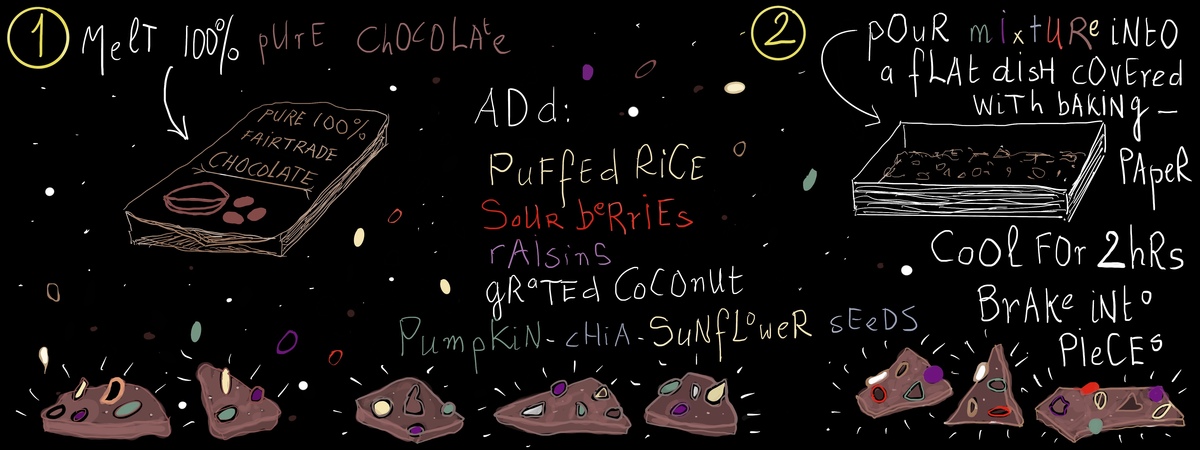 1 MeLT 100% pUrE CHOCOLAtE
PURE 100%
FAIRTRADE
CHOCOLATE
ADd:
PuFfEd RiCE
SOUR beRriEs
rAIsinS
gRaTEd COCOnUt
PumpKiN - cHiA - SuNfLoweR sEeDS
2 pOUR mixtURe iNtO
a fLAt disH cOvEred
wiTH bAKiNg -
PApeR
CoOl FOr 2hRs
BrAKe iNto
PIeCEs